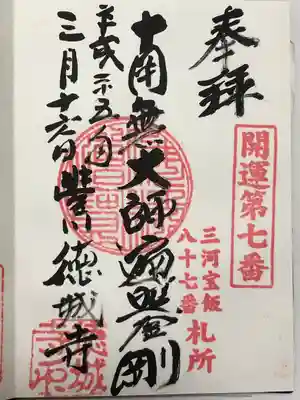 奉拝
開運第七番
三河宝飯
八十七番
札所
南無大師遍照金剛
平成二十五年
三月十六日
豊川徳城寺